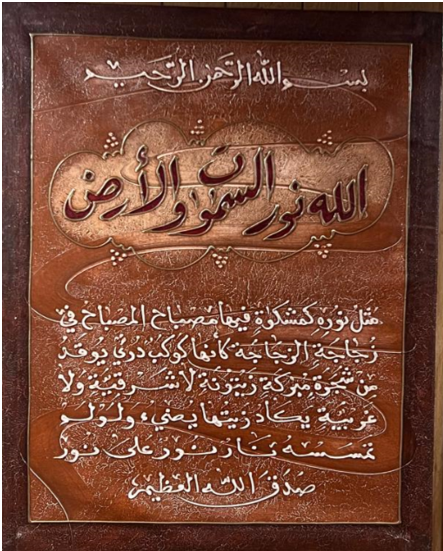 بسم الله الرحمن الرحيم
الله نور السموات والأرض
مثل نوره كمشكوة فيها مصباح المصباح في
زجاجة الزجاجة كأنها كوكب دري يوقد
من شجرة مبركة زيتونة لا شرقية ولا
غربية يكاد زيتها يضيء ولو لم
تمسسه نار نور على نور
صدق الله العظيم